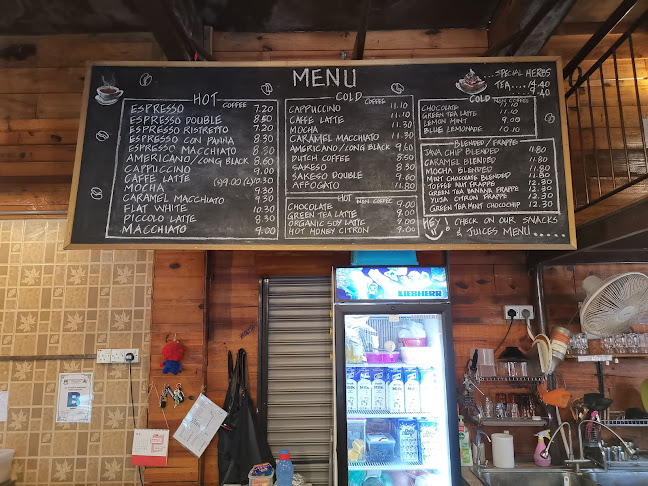 MENU
HOT COFFEE
ESPRESSO 7.20
ESPRESSO DOUBLE 8.60
ESPRESSO RISTRETTO 7.20
ESPRESSO CON PANNA 8.30
ESPRESSO MACCHIATO 8.30
AMERICANO/LONG BLACK 8.60
CAPPUCCINO 9.00
CAFFE LATTE (S)9.00 (L)
MOCHA 9.30
CARAMEL MACCHIATO 9.30
FLAT WHITE 10.30
PICCOLO LATTE 8.30
MACCHIATO 9.00
COLD COFFEE
CAPPUCCINO 11.10
CAFFE LATTE 11.10
MOCHA 11.30
CARAMEL MACCHIATO 11.30
AMERICANO/LONG BLACK 9.60
DUTCH COFFEE 8.60
SAKESO 8.30
SAKESO DOUBLE 9.60
AFFOGATO 11.80
HOT NON COFFEE
CHOCOLATE 9.00
GREEN TEA LATTE 8.00
ORGANIC SOY LATTE 9.00
HOT HONEY CITRON 9.00
...SPECIAL HERBS
TEA.... 14.40
COLD NON COFFEE
CHOCOLATE 11.10
GREEN TEA LATTE 11.10
LEMON MINT 9.00
BLUE LEMONADE 10.10
BLENDED/FRAPPE
JAVA CHIP BLENDED 11.80
CARAMEL BLENDED 11.80
MOCHA BLENDED 11.80
MINT CHOCOLATE BLENDED 11.80
TOFFEE NUT FRAPPE 12.30
GREEN TEA BANANA FRAPPE 12.30
YUJA CITRON FRAPPE 12.30
GREEN TEA MINT CHOCOCHIP 12.30
HEY! CHECK ON OUR SNACKS
& JUICES MENU.....
LIEBHERR
B